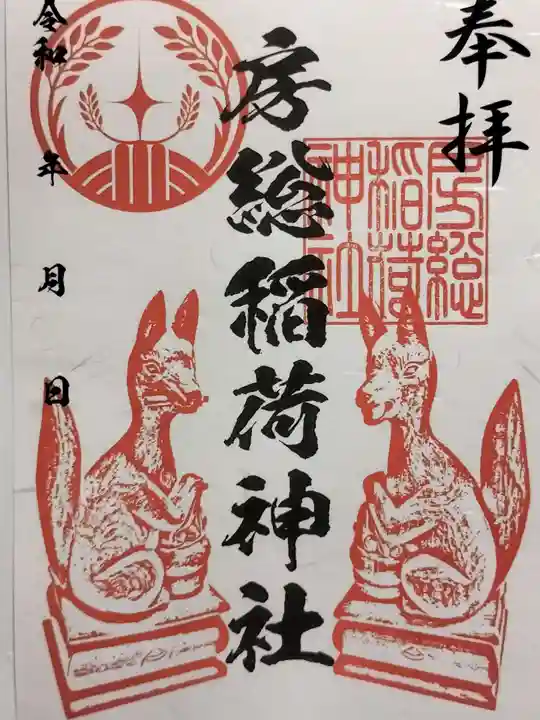 奉拝
房総
稲荷
神社
房総稲荷神社
令和 年 月 日